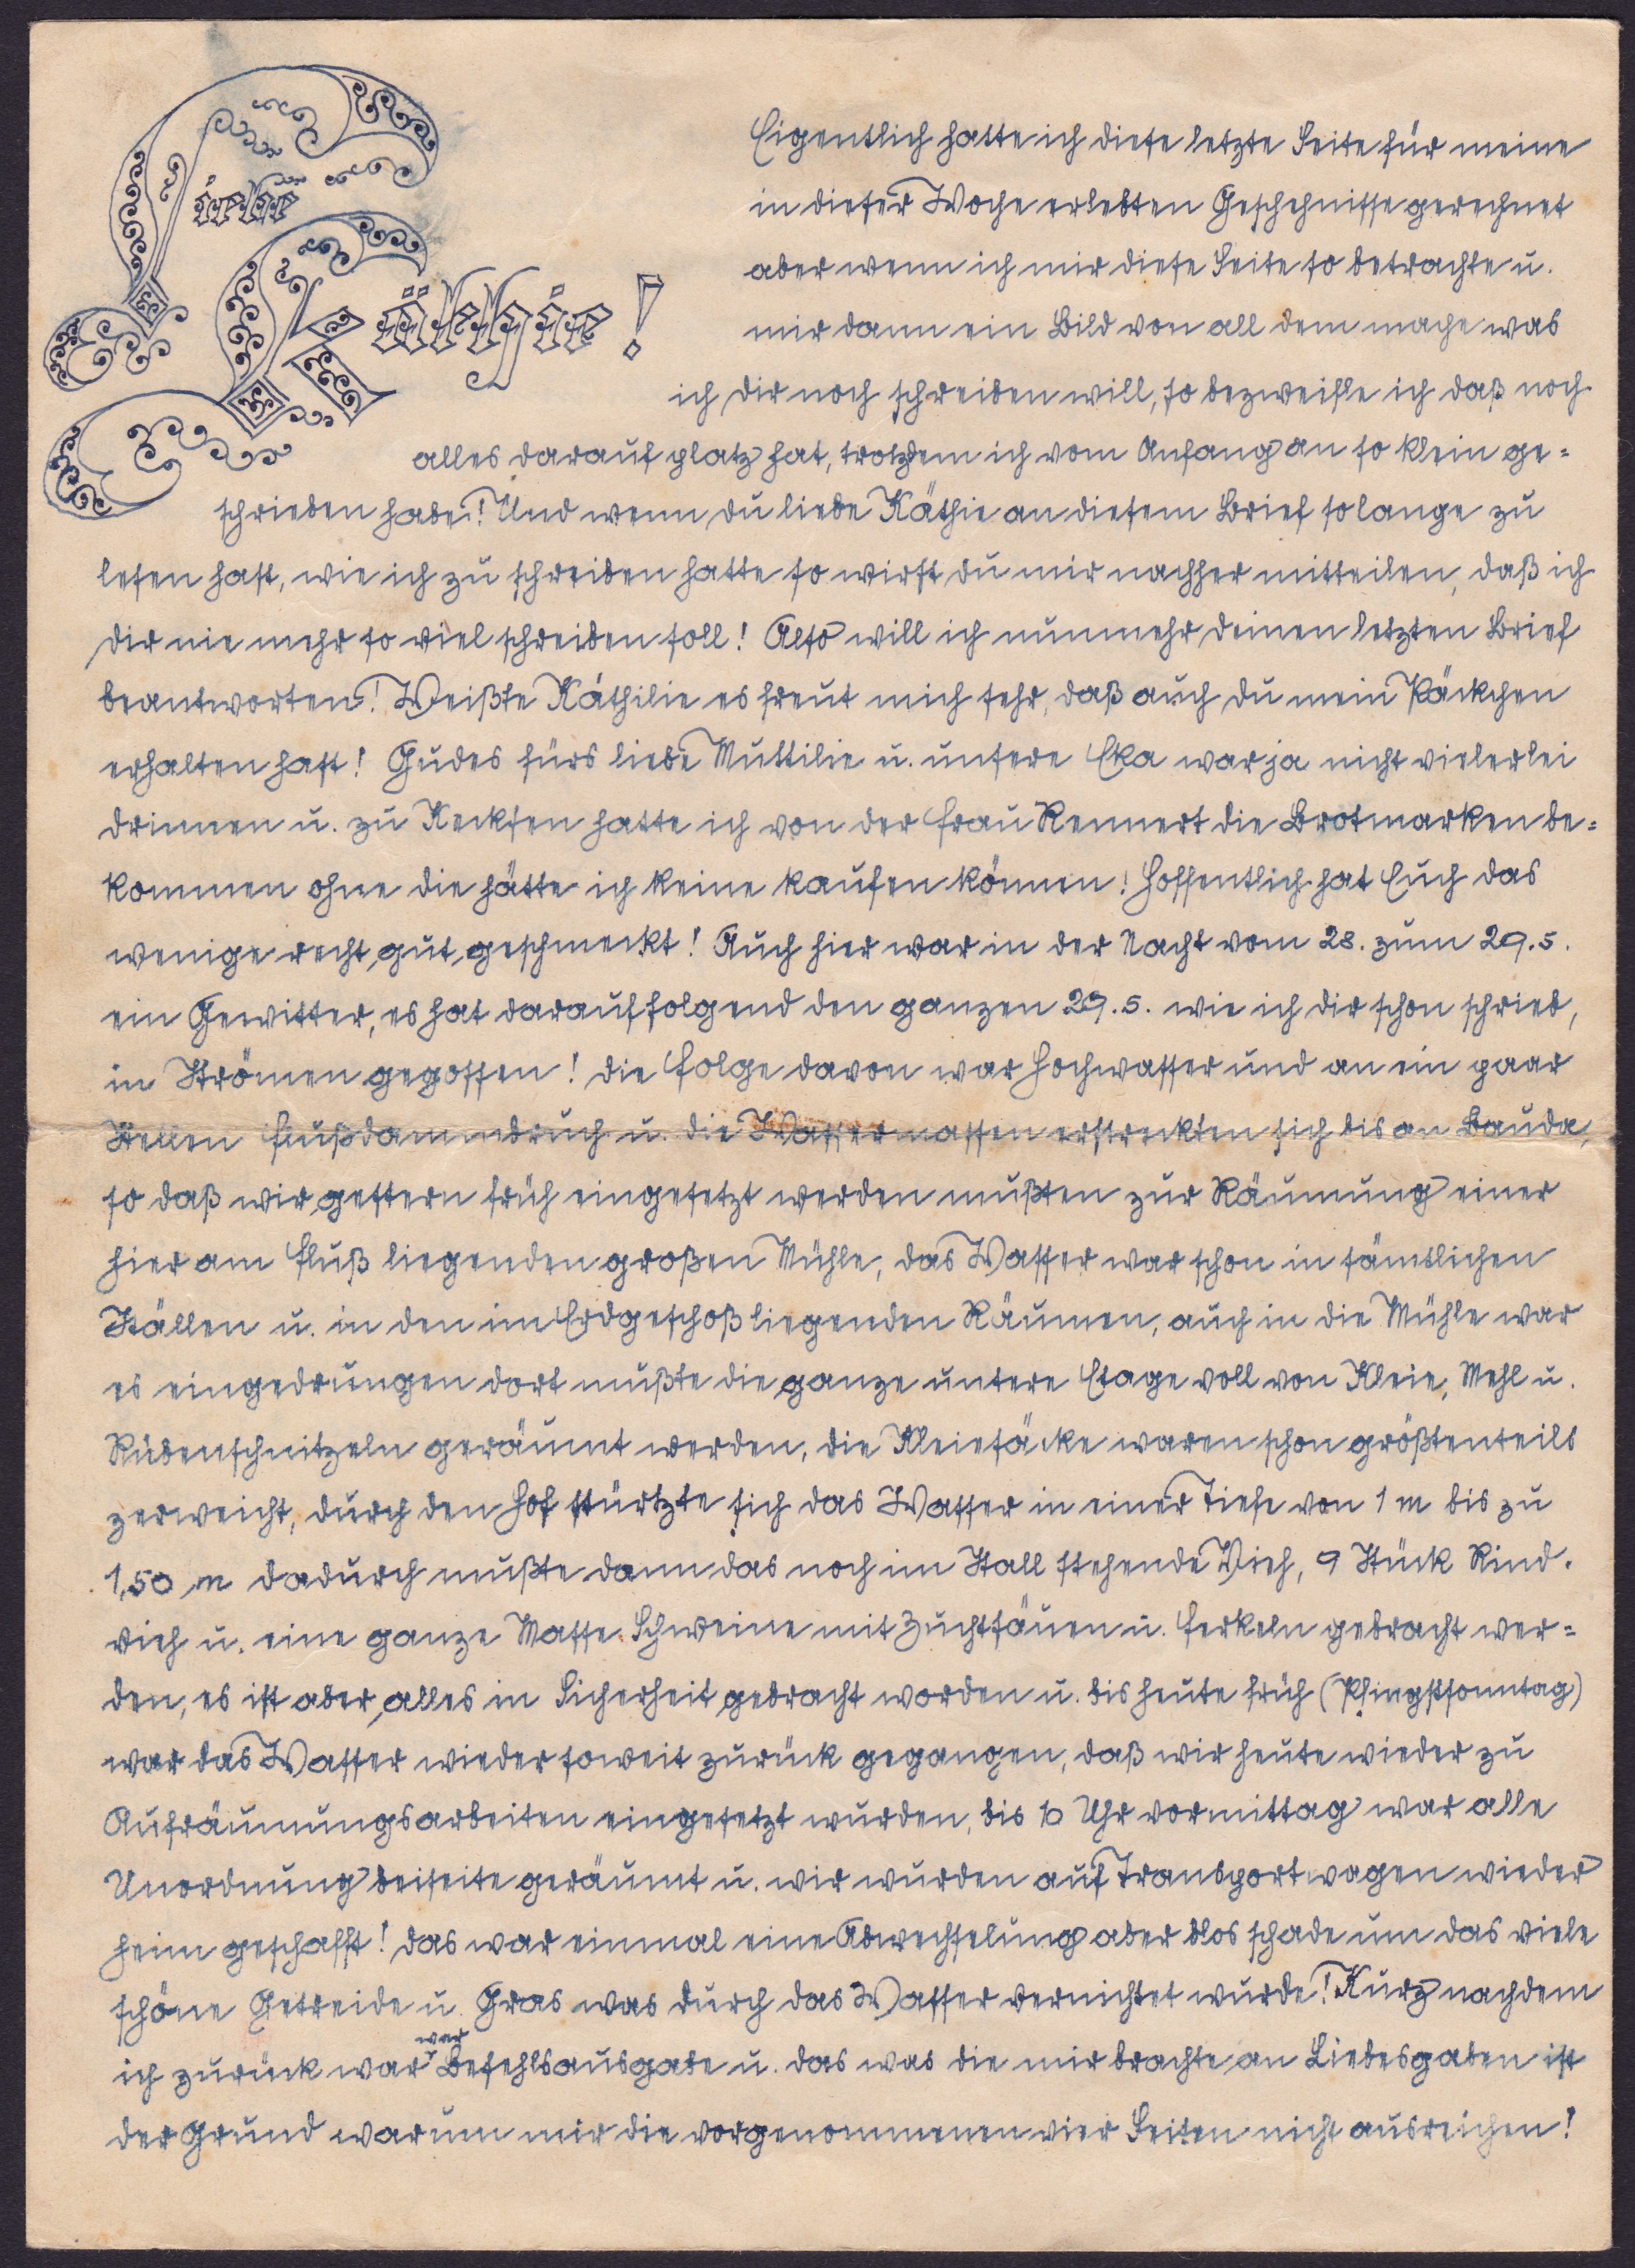 Liebe
Käthie!
Eigentlich hatte ich diese letzte Seite für meine
in dieser Woche erlebten Geschehnisse gerechnet
aber wenn ich mir diese Seite so betrachte u.
mir dann ein Bild von all dem mache was
ich dir noch schreiben will, so bezweifle ich daß noch
alles darauf platz hat, trotzdem ich vom Anfang an so klein ge=
schrieben habe! Und wenn du liebe Käthie an diesem Brief solange zu
lesen hast, wie ich zu schreiben hatte so wirst du mir nachher mitteilen, daß ich
dir nie mehr so viel schreiben soll! Also will ich nunmehr deinen letzten Brief
beantworten! Weißte Käthilie es freut mich sehr, daß auch du mein Päckchen
erhalten hast! Gudes fürs liebe Muttilie u. unsere Eka war ja nicht vielerlei
drinnen u. zu Kecksen hatte ich von der Frau Rennert die Brotmarken be=
kommen ohne die hätte ich keine kaufen können! Hoffentlich hat Euch das
wenige recht gut geschmeckt! Auch hier war in der Nacht vom 28. zum 29.5.
ein Gewitter, es hat darauffolgend den ganzen 29.5. wie ich dir schon schrieb,
in Strömen gegossen! die Folge davon war Hochwasser und an ein paar
Stellen Flußdammbruch u. die Wassermassen erstreckten sich bis an Bauda,
so daß wir gestern früh eingesetzt werden mußten zur Räumung einer
hier am Fluß liegenden großen Mühle, das Wasser war schon in sämtlichen
Ställen u. in den im Erdgeschoß liegenden Räumen, auch in die Mühle war
es eingedrungen dort mußte die ganze untere Etage voll von Kleie, Mehl u.
Rübenschnitzeln geräumt werden, die Kleiesäcke waren schon größtenteils
zerweicht, durch den Hof stürtzte sich das Wasser in einer Tiefe von 1 m bis zu
1,50 m dadurch mußte dann das noch im Stall stehende Vieh, 9 Stück Rind.
vieh u. eine ganze Masse Schweine mit Zuchtsäuen u. Ferkeln gebracht wer=
den, es ist aber alles in Sicherheit gebracht worden u. bis heute früh (Pfingstsonntag)
war das Wasser wieder soweit zurück gegangen, daß wir heute wieder zu
Aufräumungsarbeiten eingesetzt wurden, bis 10 Uhr vormittag war alle
Unordnung beiseite geräumt u. wir wurden auf Transportwagen wieder
heim geschafft! das war einmal eine Abwechselung aber blos schade um das viele
schöne Getreide u. Gras was durch das Wasser vernichtet wurde! Kurz nachdem
ich zurück war war Befehlsausgabe u. das was die mir brachte an Liebesgaben ist
der Grund warum mir die vorgenommenen vier Seiten nicht ausreichen!